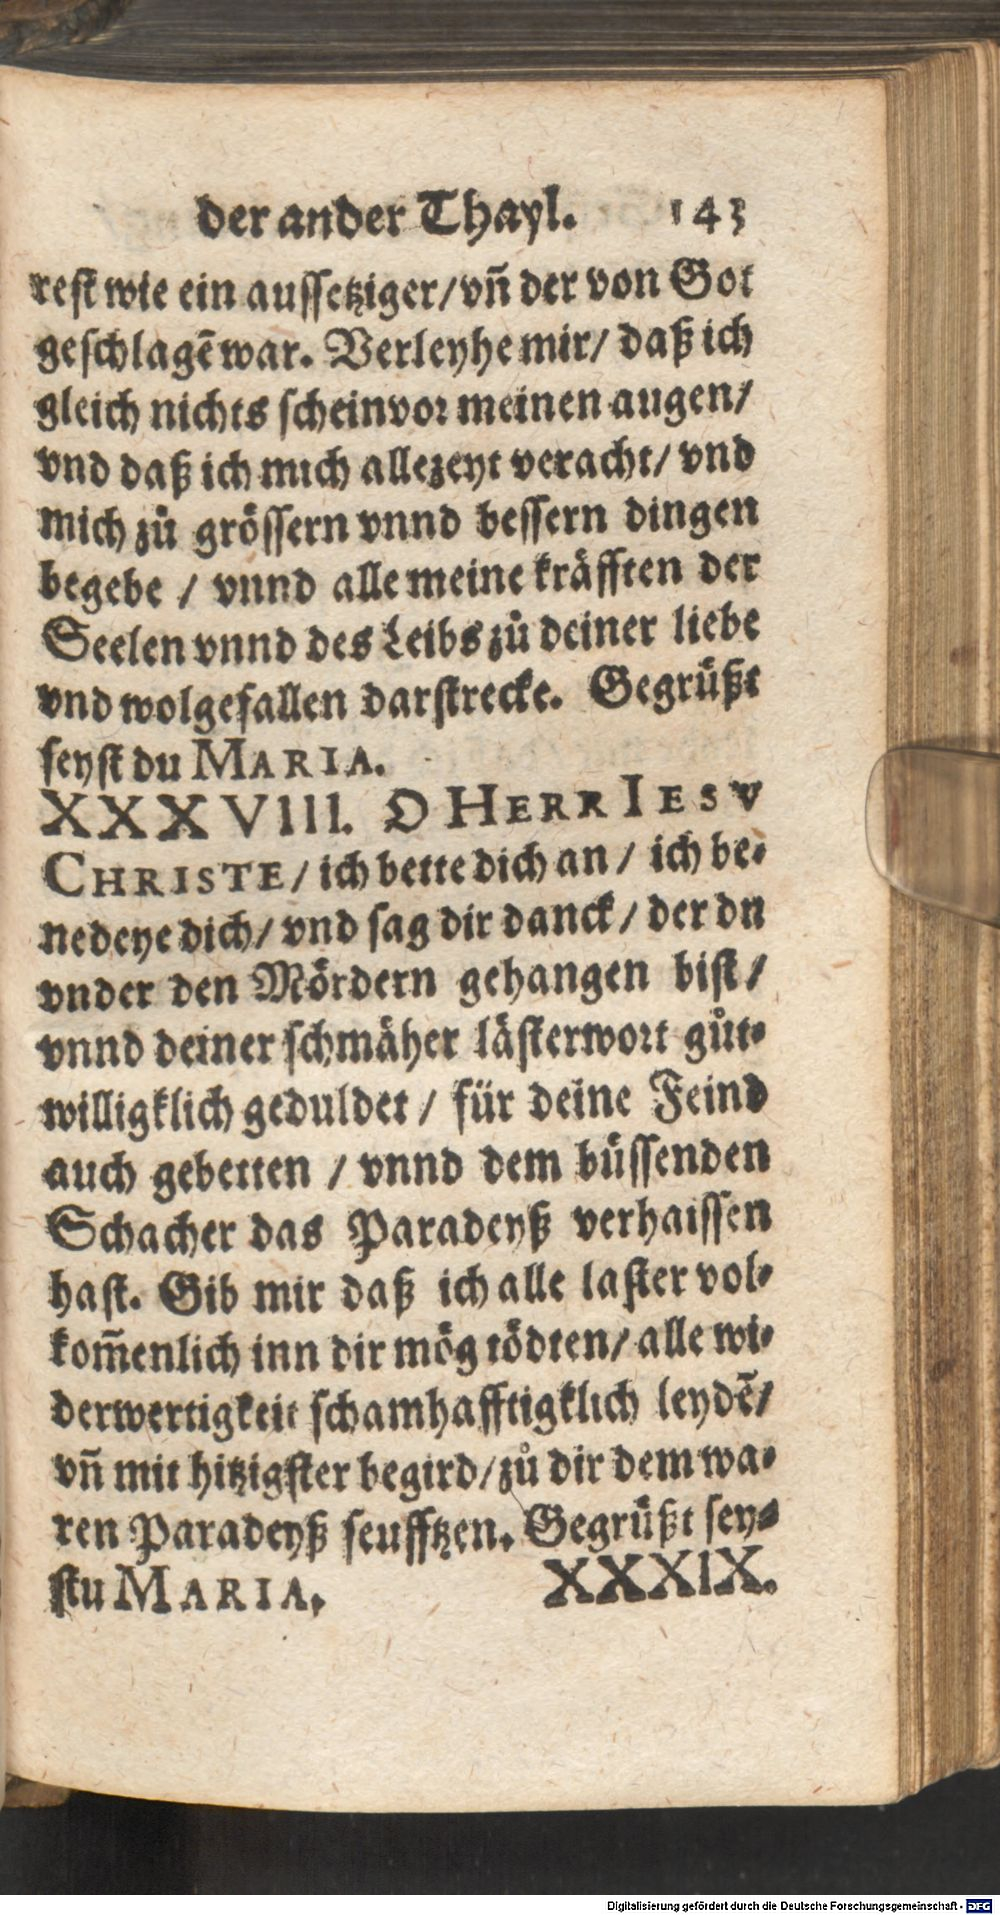 der ander Thayl. 143
rest wie ein aussetziger/vñ der von Got
geschlagẽ war. Verleyhe mir/ daß ich
gleich nichts schein vor meinen augen/
vnd daß ich mich allezeyt veracht/ vnd
mich zů grössern vnnd bessern dingen
begebe / vnnd alle meine kräfften der
Seelen vnnd des Leibs zů deiner liebe
vnd wolgefallen darstrecke. Gegrüßt
seyst du MARIA.
XXXVIII. O HERR IESV
CHRISTE/ ich bette dich an/ ich be-
nedeye dich/ vnd sag dir danck/ der du
vnder den Mördern gehangen bist/
vnnd deiner schmäher lästerwort gůt-
willigklich geduldet/ für deine Feind
auch gebetten / vnnd dem büssenden
Schacher das Paradeyß verhaissen
hast. Gib mir daß ich alle laster vol-
kom̃enlich inn dir mög tödten/ alle wi-
derwertigkeit schamhafftigklich leydẽ/
vñ mit hitzigster begird/zů dir dem wa-
ren Paradeyß seufftzen. Gegrüßt sey-
stu MARIA. XXXIX.
Digitalisierung gefördert durch die Deutsche Forschungsgemeinschaft - DFG